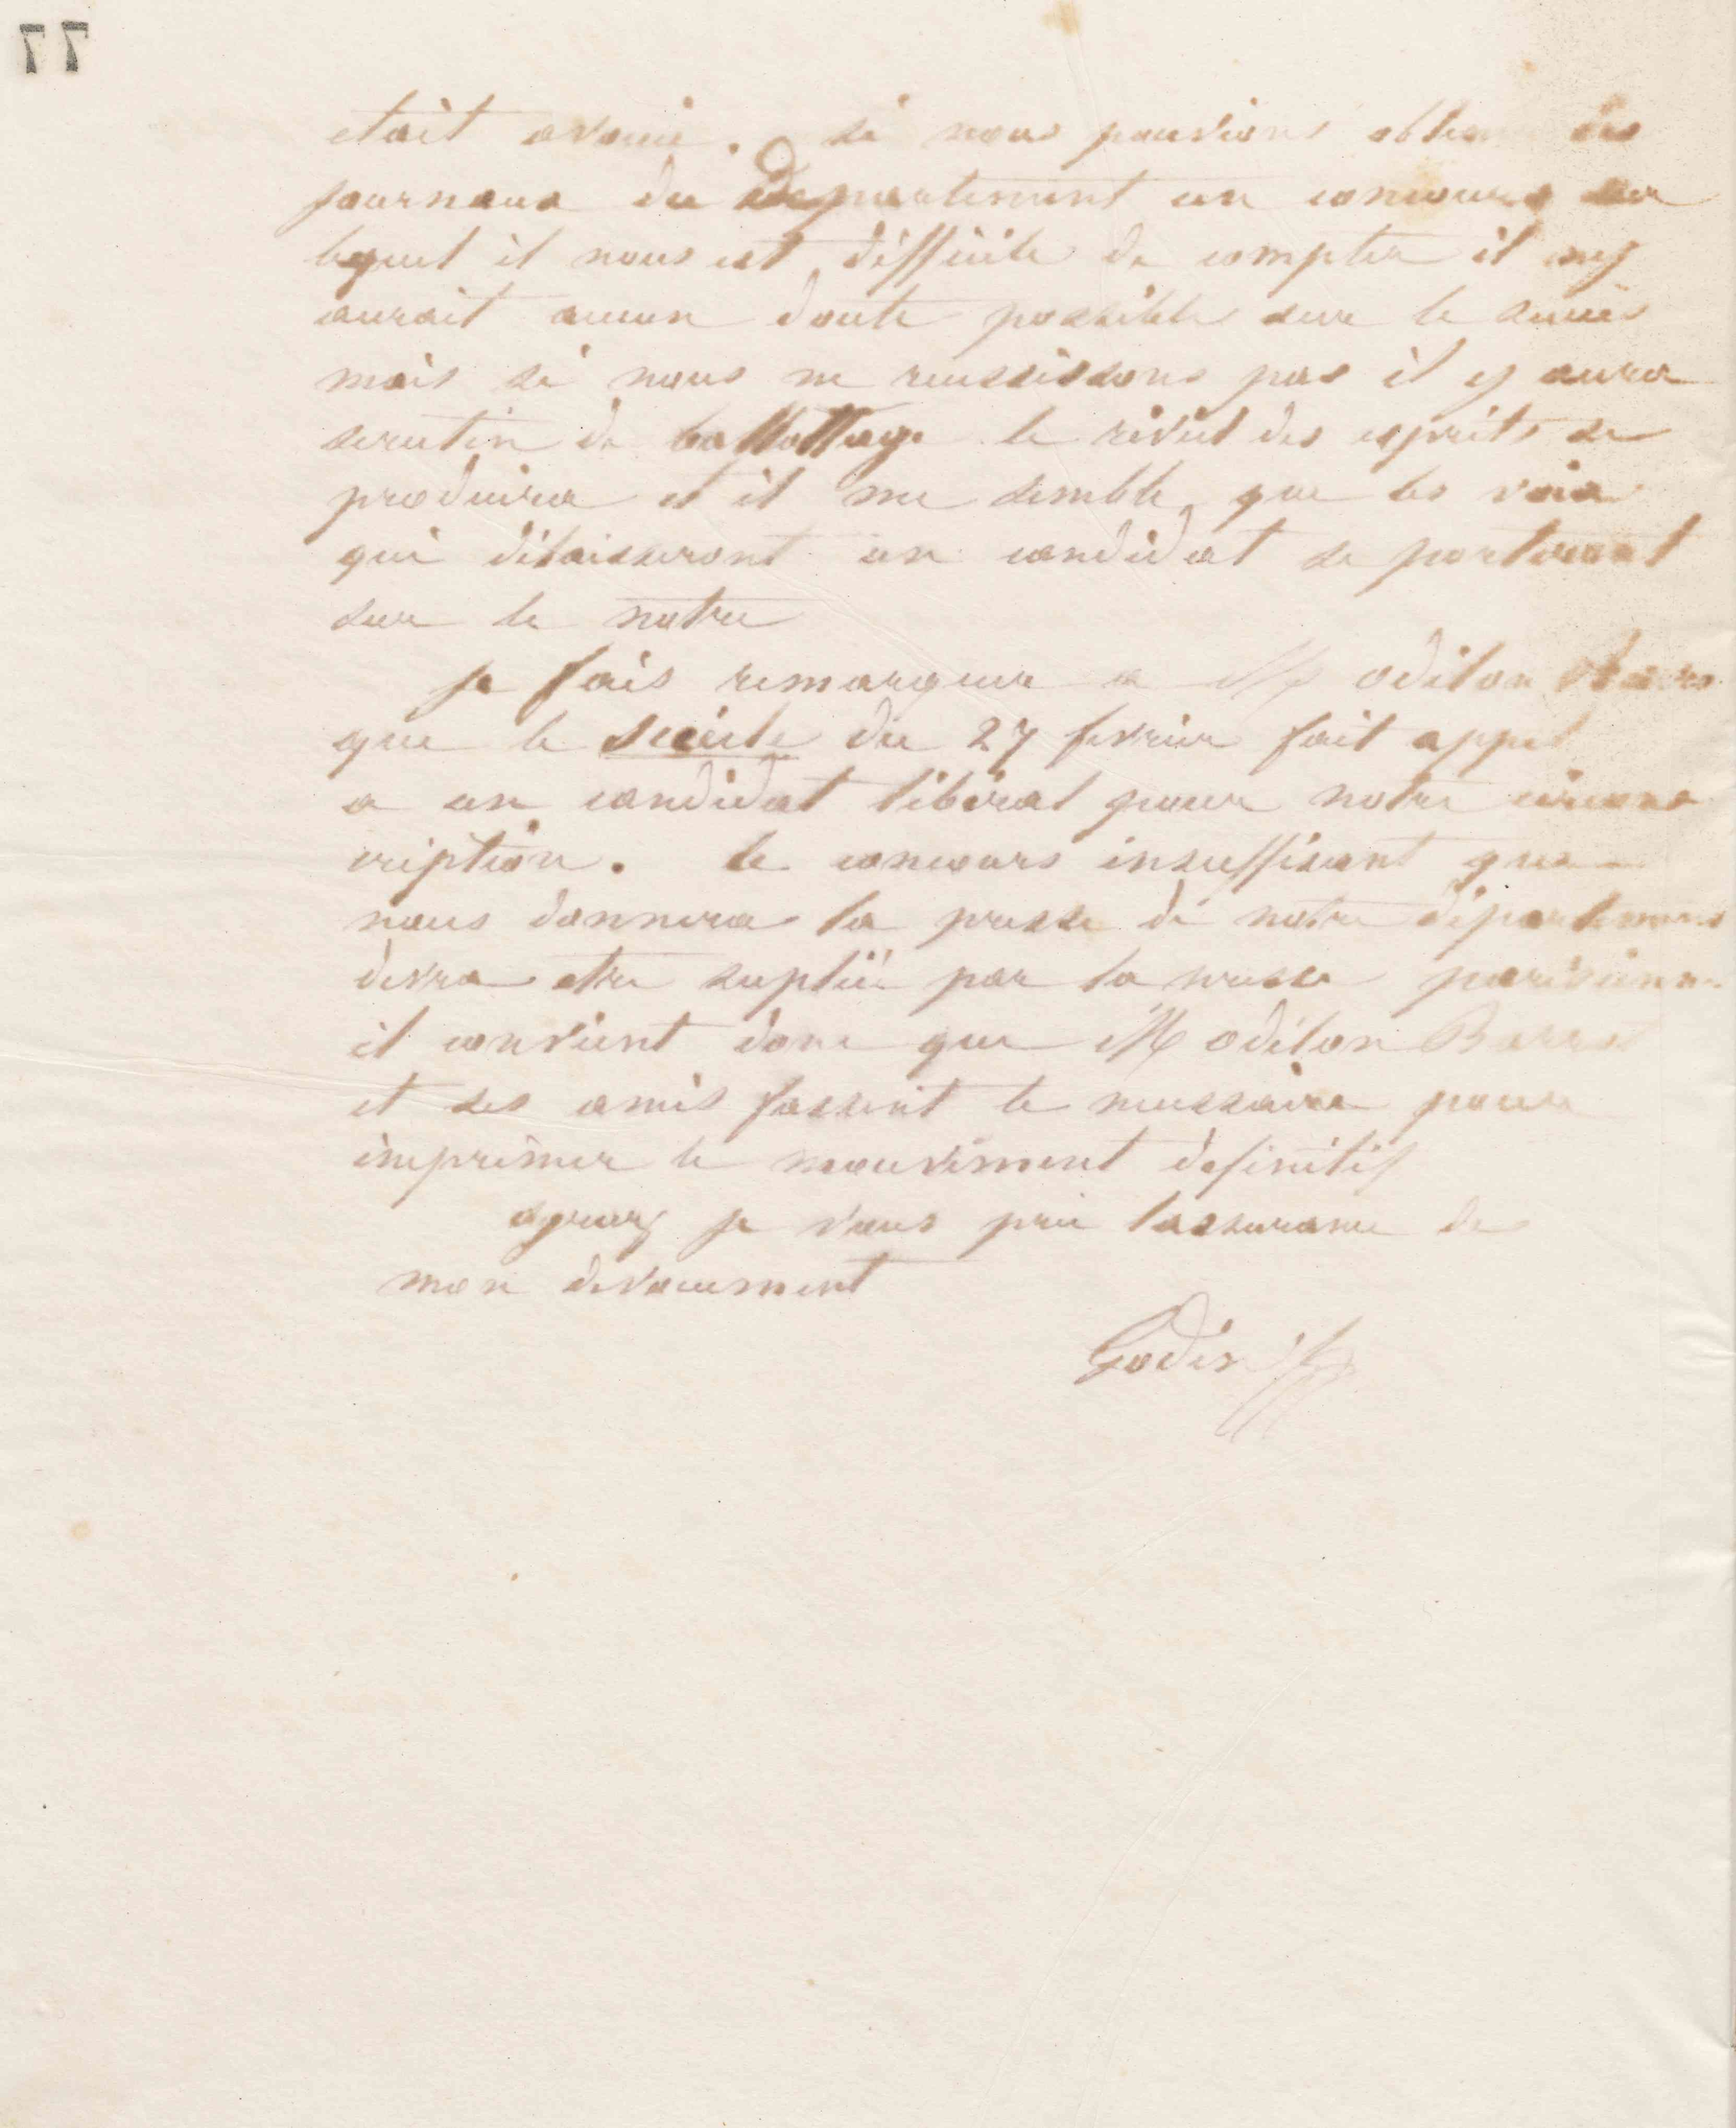 77
etait avoué. si nous pouvions obtenir des
journaux du Département un concours sur
lequel il nous est difficile de compter il ny
aurait aucun doute possible sur le succès
mais si nous ne reussissons pas il y aura
scrutin de ballottage le réveil des esprits se
produira et il me semble que les voix
qui délaisseront un candidat se porteront
sur le notre
je fais remarquer a M odilon Barrot
que le siècle du 27 fevrier fait appel
a un candidat libéral pour notre circons
cription. le concours insuffisant que
nous donnera la presse de notre département
devra etre suplée par la presse parisienne
il convient donc que M odilon Barrot
et ses amis fassent le necessaire pour
imprimer le mouvement definitif
agreez je vous prie lassurance de
mon devouement
Godin